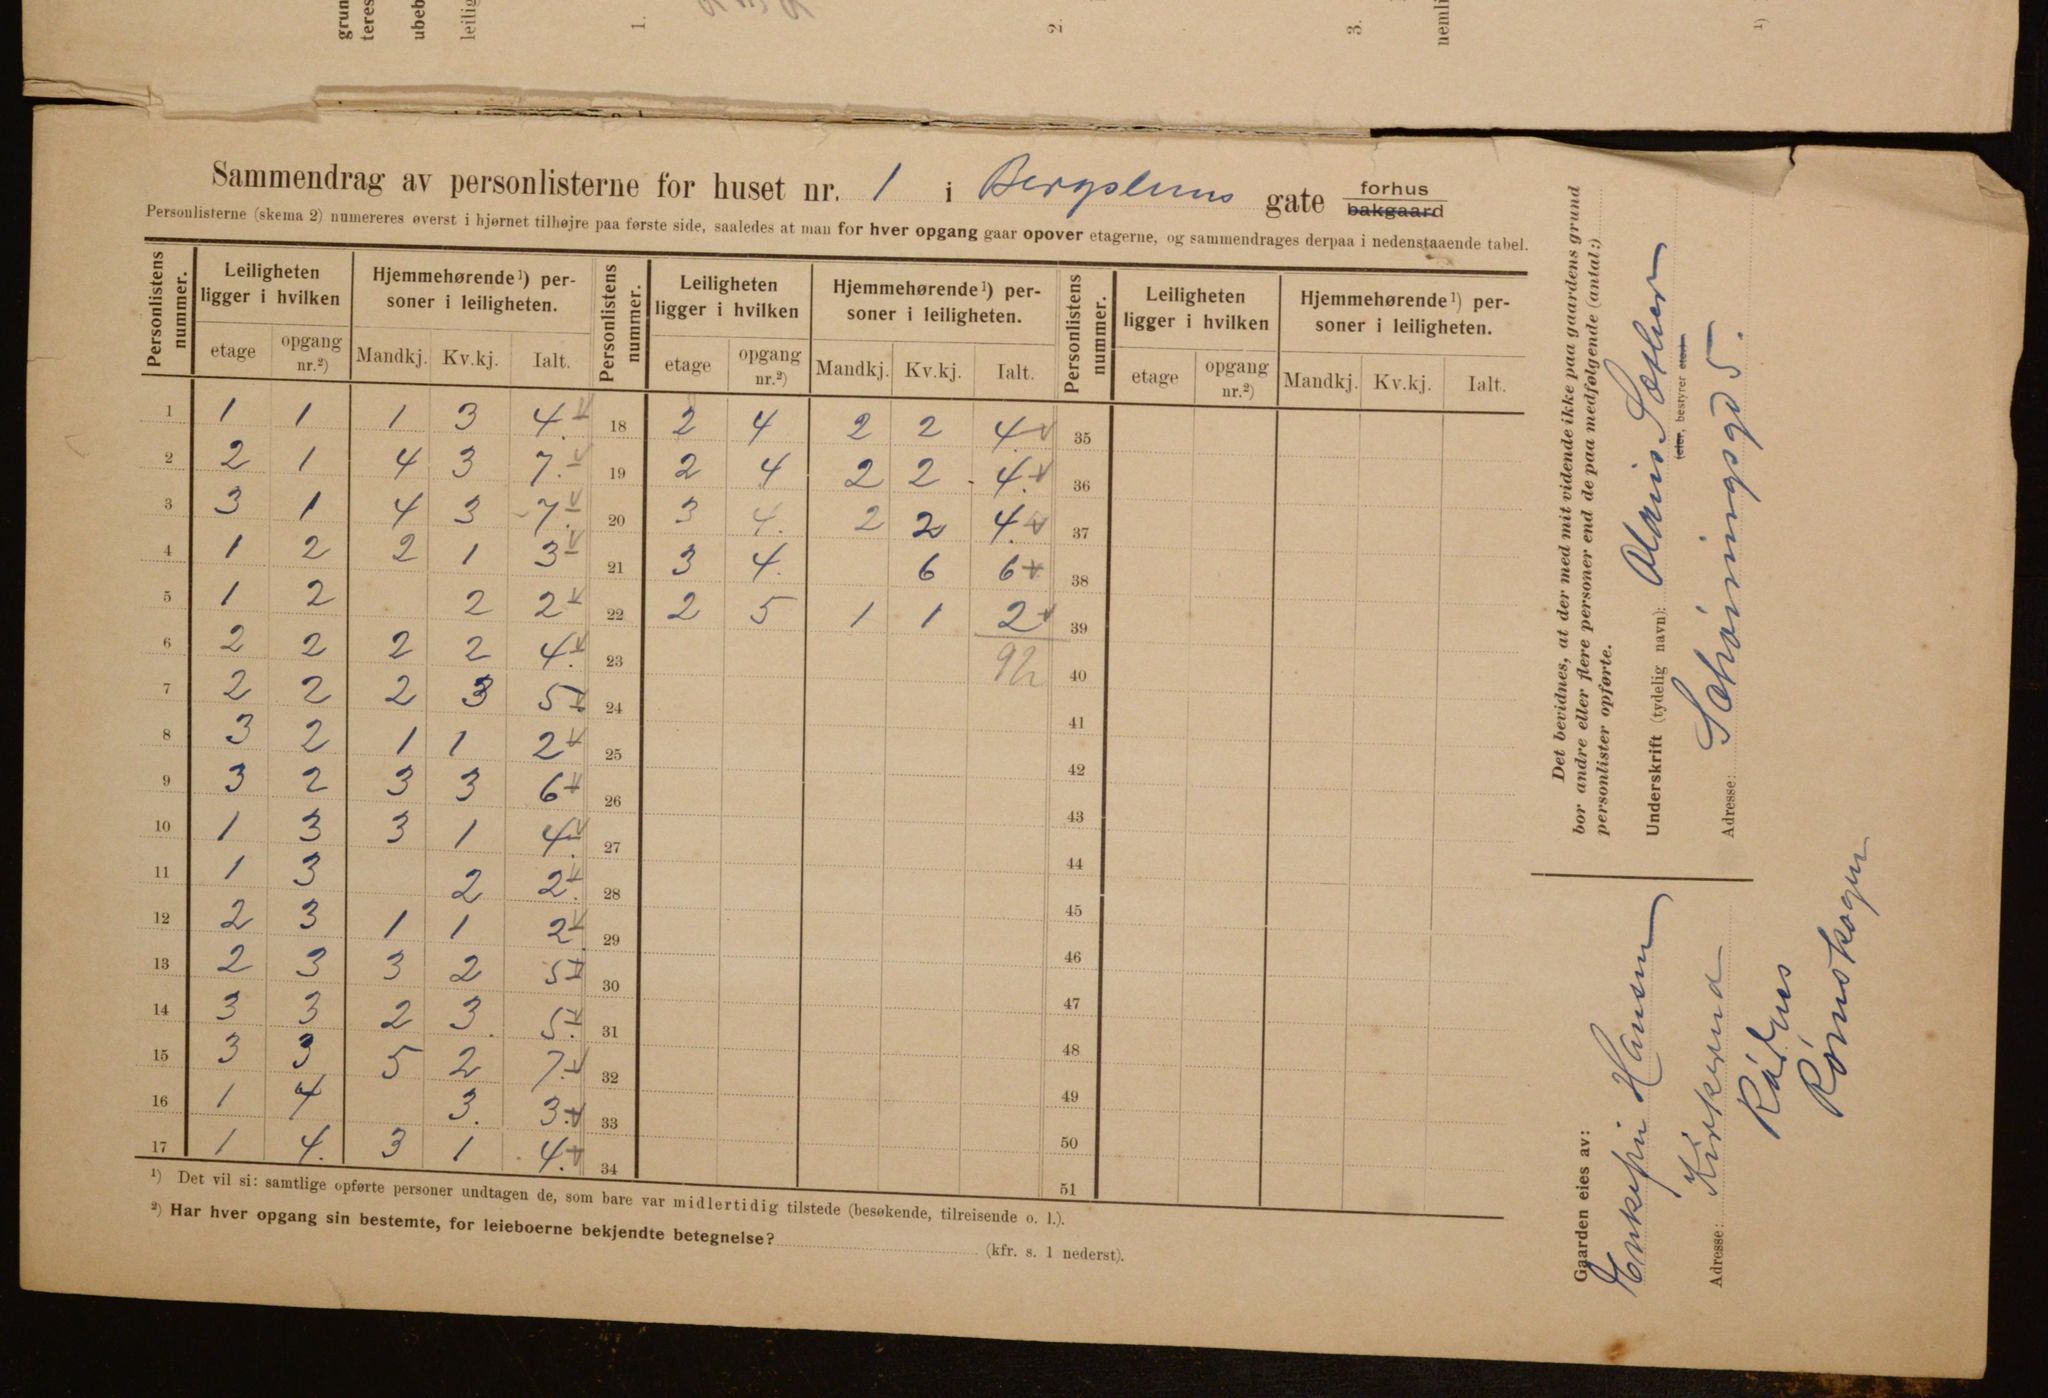 grun
teres
ubeb
leilig
1.
2.
3.
nemli
1)
Sammendrag av personlisterne for huset nr. 1 i Bergsliens gate forhus bakgaard
Personlisterne (skema 2) numereres øverst i hjørnet tilhøjre paa første side, saaledes at man for hver opgang gaar opover etagerne, og sammendrages derpaa i nedenstaaende tabel.
Personlistens nummer. Leiligheten ligger i hvilken Hjemmehørende 1) personer i leiligheten. Personlistens nummer. Leiligheten ligger i hvilken Hjemmehørende 1) personer i leiligheten. Personlistens nummer. Leiligheten ligger i hvilken Hjemmehørende 1) personer i leiligheten.
etage opgang nr.2) Mandkj. Kv.kj. Ialt. etage opgang nr.2) Mandkj. Kv.kj. Ialt. etage opgang nr.2) Mandkj. Kv.kj. Ialt.
1 1 1 1 3 4. 18 2 4 2 2 4. 35
2 2 1 4 3 7. 19 2 4 2 2 4. 36
3 3 1 4 3 7. 20 3 4. 2 2 4. 37
4 1 2 2 1 3 21 3 4. 6 6 38
5 1 2 2 2 22 2 5 1 1 2 39
6 2 2 2 2 4. 23 92 40
7 2 2 2 3 5 24 41
8 3 2 1 1 2 25 42
9 3 2 3 3 6 26 43
10 1 3 3 1 4. 27 44
11 1 3 2 2. 28 45
12 2 3 1 1 2. 29 46
13 2 3 3 2 5 30 47
14 3 3 2 3. 5. 31 48
15 3 3 5 2 7. 32 49
16 1 4 3. 3. 33 50
17 1 4. 3 1 4. 34 51
1) Det vil si: samtlige opførte personer undtagen de, som bare var midlertidig tilstede (besøkende, tilreisende o. l.).
2) Har hver opgang sin bestemte, for leieboerne bekjendte betegnelse? (kfr. s. 1 nederst).
Det bevidnes, at der med mit vidende ikke paa gaardens grund
bor andre eller flere personer end de paa medfølgende (antal:)
personlister opførte.
Underskrift (tydelig navn):
eier, bestyrer
Adresse: Schøningsgd 5.
Gaarden eies av:
Enkefru Hansen
Adresse:
Rønskogen